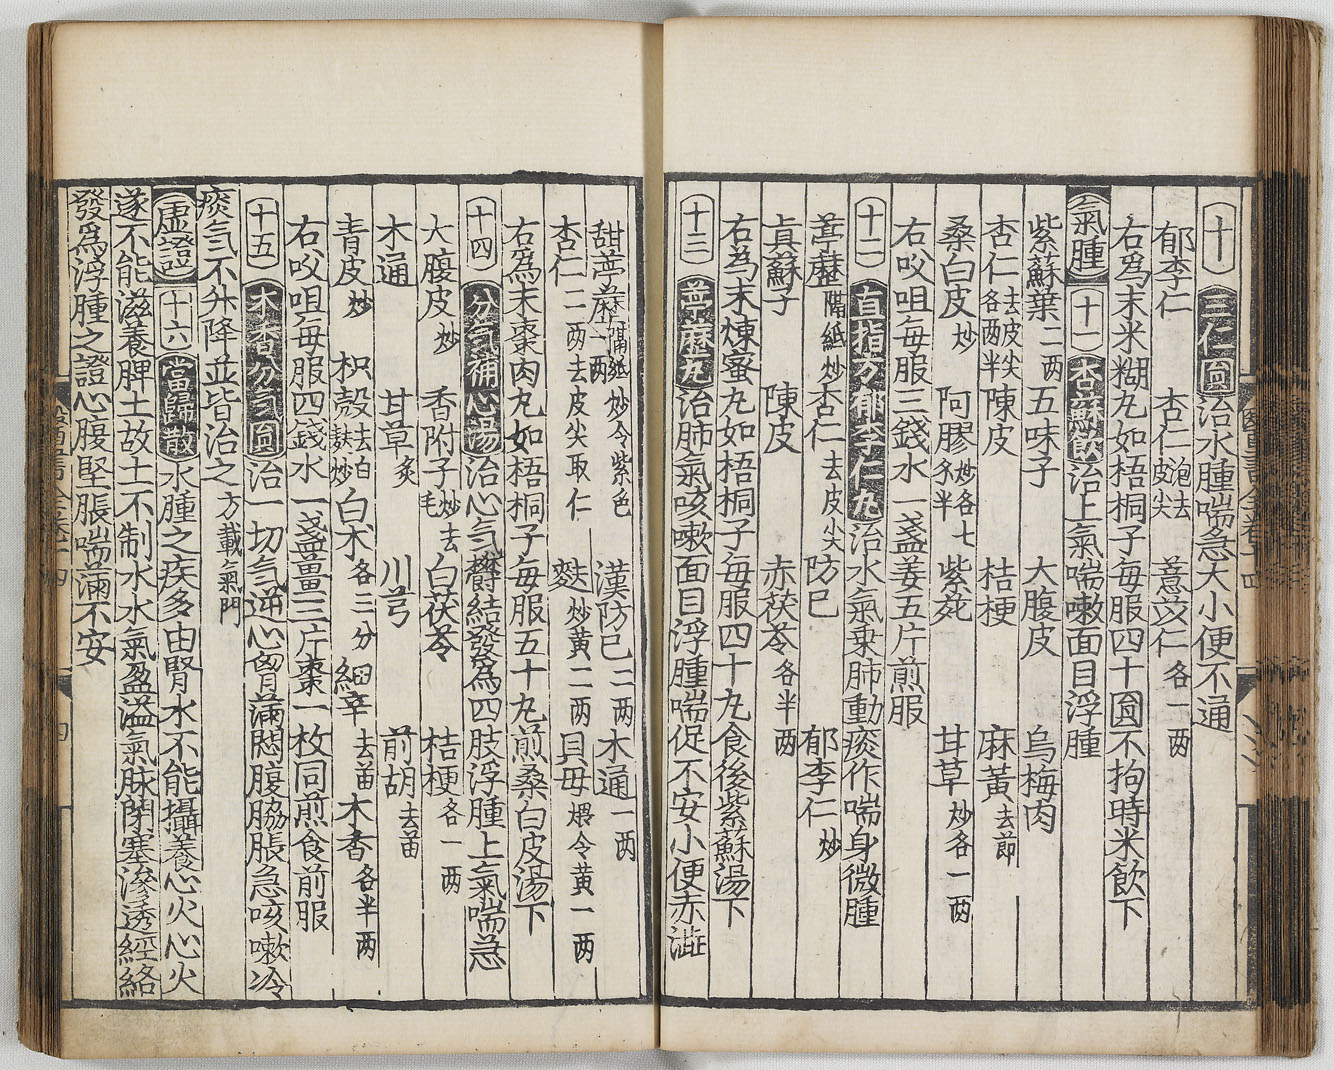 十 三仁圓 治水腫喘急大小便不通
郁李仁 杏仁炮去皮尖 薏苡仁各一两
右爲末米糊丸如梧桐子毎服四十圓不拘時米飲下
氣腫 十一 杏蘇飲 治上氣喘嗽面目浮腫
紫蘇葉二两 五味子 大腹皮 烏梅肉
杏仁去皮尖各两半 陳皮 桔梗 麻黃去節
桑白皮炒 阿膠炒各七夕半 紫菀 甘草炒各一两
右㕮咀毎服三錢水一盞姜五片煎服
十二 直指方郁李仁丸 治水氣乗肺動痰作喘身微腫
葶藶隔紙炒 杏仁去皮尖 防巳 郁李仁炒
眞蘇子 陳皮 赤茯苓各半两
右為末煉蜜丸如梧桐子毎服四十丸食後紫蘇湯下
十三 葶藶丸 治肺氣咳嗽面目浮腫喘促不安小便赤澁
甜葶藶隔紙炒令紫色一两 漢防巳二两 木通一两
杏仁二两去皮尖取仁 麩炒黄二两 貝母煨令黄一两
右爲末棗肉丸如梧桐子毎服五十丸煎桑白皮湯下
十四 分氣補心湯 治心气欝結發為四肢浮腫上氣喘急
大腹皮炒 香附子炒去毛 白茯苓 桔梗各一两
木通 甘草炙 川芎 前胡去苗
青皮炒 枳殻去白麸炒 白术各三分 細辛去苗 木香各半两
右㕮咀毎服四錢水一盞薑三片棗一枚同煎食前服
十五 木香分气圓 治一切气逆心胷滿悶腹脇脹急咳嗽冷
痰气不升降並皆治之方載氣門
虚證 十六 當歸散 水腫之疾多由腎水不能攝養心火心火
遂不能滋養脾土故土不制水水氣盈溢氣脉閉塞滲透經絡
發爲浮腫之證心腹堅脹喘滿不安